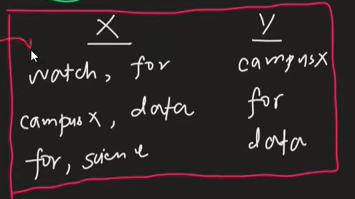 X Y
watch, for campusX
campusX, data for
for, science data